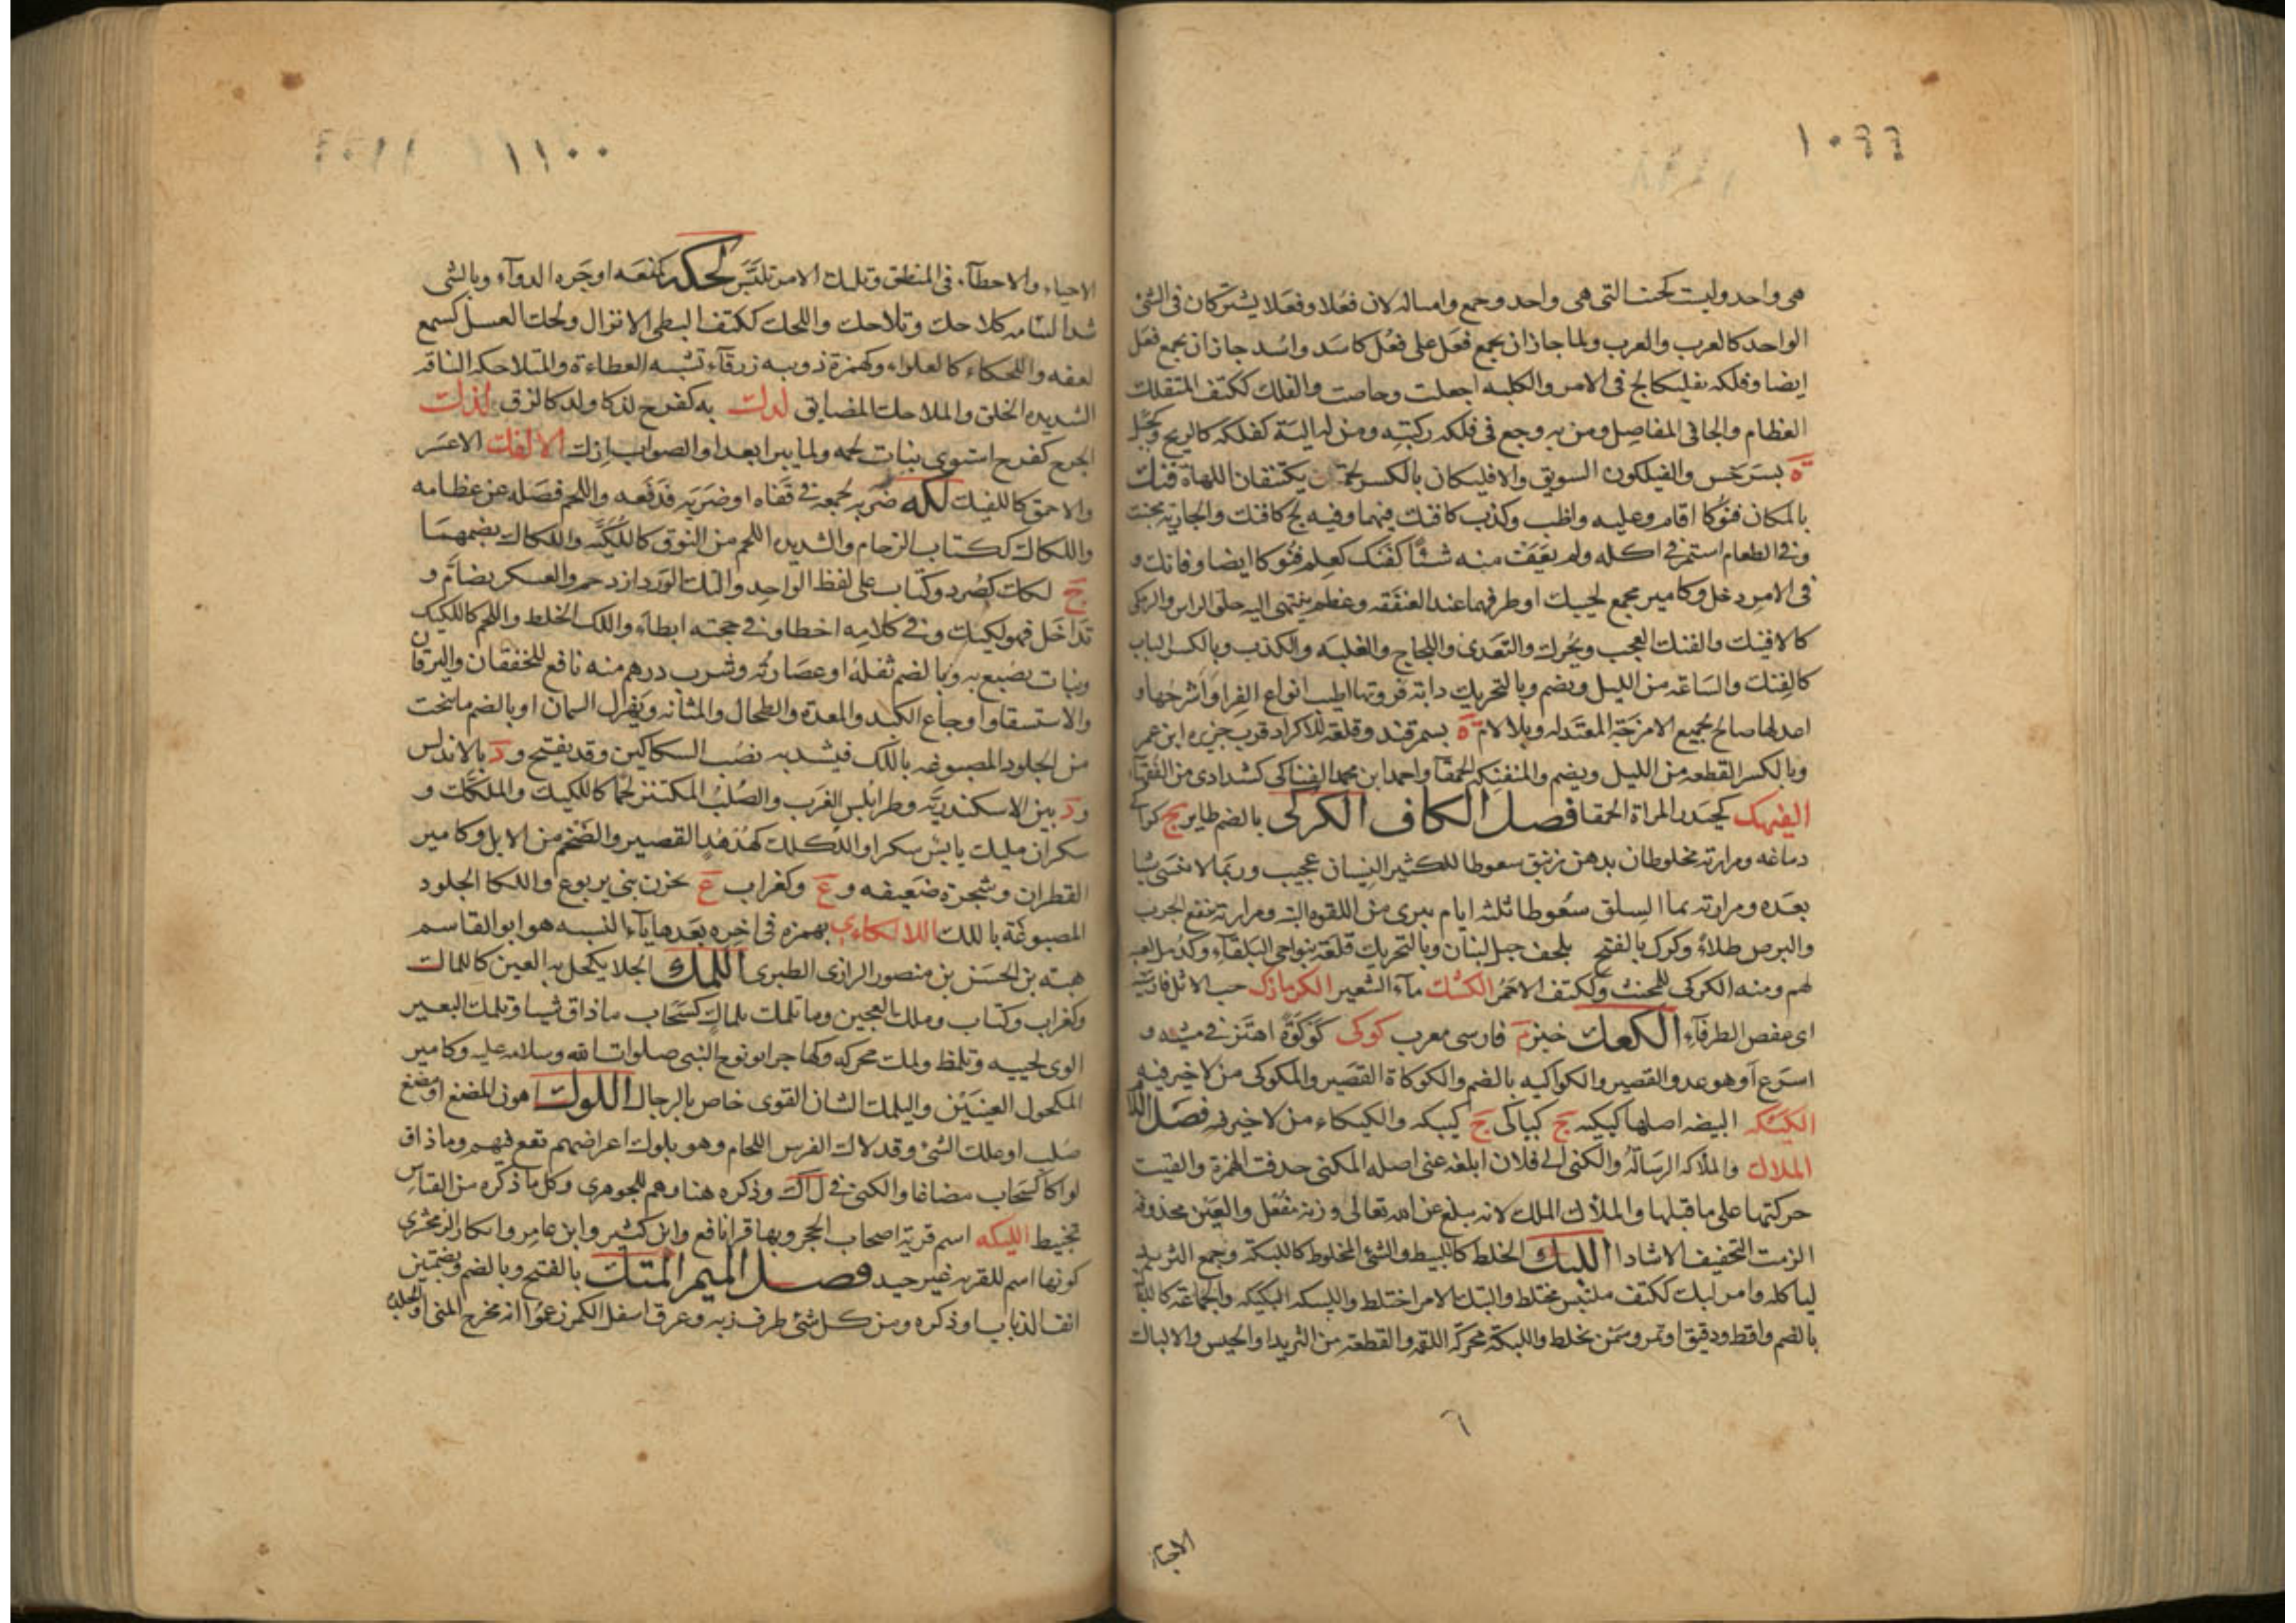 ١٠٩٩
هى واحد وليست كجنب التى هى واحد وجمع وامثاله لان فعلا وفعلا يشتركان فى الشئ
الواحد كالعرب والعرب ولما جاز ان يجمع فعل على فعل كاسد واسد جاز ان يجمع فعل
ايضا وفلكه تفليكا لج فى الامر والكلبه اجعلت وحاضت والفلك ككتف المتفلك
العظام والجافى المفاصل ومن به وجع فى فلكة ركبته ومن له الية كفلكه كالزنج وكجبل
ة بسرخس والفيلكون السويق والافليكان بالكسر لحمتان يكتنفان اللهاة فنك
بالمكان فنوكا اقام وعليه واظب وكذب كافنك فيهما وفيه لج كافنك والجارية مجنت
وفى الطعام استمر فى اكله ولم يعف منه شئا كفنك كعلم فنوكا ايضا وفانك و
فى الامر دخل وكامير مجمع لحييك او طرفهما عند العنفقه وعظم ينتهى اليه حلق الراس والزمكى
كالافنيك والفنك العجب ويحرك والتعدى واللجاج والغلبه والكذب وبالكسر الباب
كالفنك والساعه من الليل ويضم وبالتحريك دابة فروتها اطيب انواع الفرا واشرحها و
اعدلها صالح لجميع الامزجة المعتدله وبلا لام ة بسمرقند وقلعة للاكراد قرب جزيرة ابن عمر
وبالكسر القطعه من الليل ويضم والمنفنكه الحمقآ واحمد ابن محمد الفناكى كشدادى من الفقهآ
الفيهك كحيدر المراة الحمقا فصل الكاف الكركى بالضم طاير ج كراكى
دماغه ومرارته مخلوطان بدهن زنبق سعوطا للكثير النسيان عجيب وربما لا ينسى شيا
بعده ومرارته بما السلق سعوطا ثلثه ايام يبرى من اللقوه البته ومرارته تنفع الجرب
والبرص طلاء وكرك بالفتح بلحف جبل لبنان وبالتحريك قلعة بنواحى البلقآء وكدمل لعبه
لهم ومنه الكركى للمخنث وككتف الاحمر الكشك مآء الشعير الكزمازك حب الاثل فارسيته
اى عفص الطرفآء الكعك خبز م فارسى معرب كوكى كوكوة اهتز فى مشيه و
اسرع او هو عدو القصير والكواكيه بالضم والكوكاة القصير والمكوكى من لا خير فيه
الكيكه البيضه اصلها كيكية ج كياكى ج كييكه والكيكاء من لا خير فيه فصل اللام
الملاك والملاكه الرسالة والكنى الى فلان ابلغه عنى اصله المكنى حذفت الهمزة والقيت
حركتها على ما قبلها والملأك الملك لانه يبلغ عن الله تعالى وزنه مفعل والعين محذوفة
الزمت التخفيف الا شاذا اللبك الخلط كالتلبيط والشئ المخلوط كاللبكة وجمع الثريد
لياكله وامر لبك ككتف ملتبس مختلط والتبك الامر اختلط واللبيكه البكيكه والجماعة كاللباكة
بالضم واقط ودقيق او تمر وسمن يخلط واللبكة محركة اللقمه والقطعة من الثريد او الحيس والالباك
٦
الاحياء
١١٠٠
الاحياء والاخطآء فى المنطق وتلبك الامر تلبس لحكه كمنعه اوجره الدوآء وبالشى
شد التئامه كلاحك وتلاحك واللحك ككتف البطى الانزال ولحك العسل كسمع
لعقه واللحكاء كالغلواء وكهمزة ذويبه زرقآء تشبه العظاءة والمتلاحكه الناقه
الشديده الخلق والملاحك المضايق لدك به كفرح لدكا ولدكا لزق لذك
الجرح كفرح استوى نبات لحمه ولما يبرا بعد او الصواب ازك الالفك الاعسر
والاحمق كاللفيك لكه ضربه بجمعه فى قفاه او ضربه فدفعه واللحم فصله عن عظامه
واللكاك ككتاب الزحام والشديده اللحم من النوق كاللكيه واللكاك بضمهما
ج لكك كصرد وكتاب على لفظ الواحد والتك الورد ازدحم والعسكر تضام و
تداخل فهو لكيك وفى كلامه اخطا وفى حجته ابطاء واللك الخلط واللحم كاللكيك
ونبات يصبغ به وبالضم ثفله او عصارته وشرب درهم منه نافع للخفقان واليرقان
والاستسقا واوجاع الكبد والمعدة والطحال والمثانه ويهزل السمان او بالضم ما ينحت
من الجلود المصبوغه باللك فيشد به نصب السكاكين وقد يفتح و د بالاندلس
و د بين الاسكندريه وطرابلس الغرب والصلب المكتنز لحما كاللكيك والملكك و
سكران ملتك يابس سكرا واللكلك كهدهد القصير والضخم من الابل وكامير
القطران وشجرة ضعيفه و ع وكغراب ع بحزن بنى يربوع واللكا الجلود
المصبوغة باللك اللالكاءى بهمزه فى اخره بعدها يآء النسبه هو ابو القاسم
هبة بن الحسن بن منصور الرازى الطبرى اللمك الجلا يكحل به العين كاللماك
وكغراب وكتاب وملك العجين وما تلمك بلماك كسحاب ما ذاق شيا وتلمك البعير
الوى لحييه وتلمظ ولمك محركه وكهاجر ابو نوح النبى صلوات الله وسلامه عليه وكامير
المكحول العينين واليلمك الشاب القوى خاص بالرجال اللوك اهون المضغ او مضغ
صلب او علك الشئ وقد لاك الفرس اللجام وهو يلوك اعراضهم تقع فيهم وما ذاق
لواكا كسحاب مضاغا والكنى فى لأك وذكره هنا وهم للجوهرى وكل ما ذكره من القياس
تخبيط الليكه اسم قرية اصحاب الحجر وبها قرا نافع وابن كثير وابن عامر وانكار الزمخشرى
كونها اسم للقريه غير جيد فصل الميم المتك بالفتح وبالضم وبضمتين
انف الذباب او ذكره ومن كل شئ طرف زبه وعرق اسفل الكمر زعموا انه مخرج المنى او الجلدة